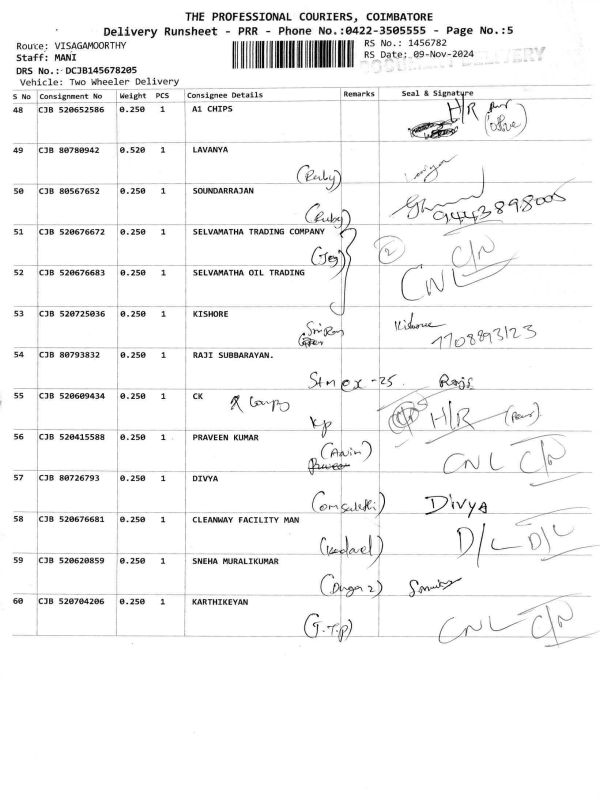 THE PROFESSIONAL COURIERS, COIMBATORE
Delivery Runsheet - PRR - Phone No.:0422-3505555 - Page No.:5
Route: VISAGAMOORTHY
RS No.: 1456782
Staff: MANI
RS Date: 09-Nov-2024
DOCUMENT DELIVERY
DRS No.: DCJB145678205
Vehicle: Two Wheeler Delivery
S No Consignment No Weight PCS Consignee Details Remarks Seal & Signature
48 CJB 520652586 0.250 1 A1 CHIPS H/R
(office)
49 CJB 80780942 0.520 1 LAVANYA
(Ruby)
50 CJB 80567652 0.250 1 SOUNDARRAJAN
(Ruby) 9443898005
51 CJB 520676672 0.250 1 SELVAMATHA TRADING COMPANY
2 C/N
52 CJB 520676683 0.250 1 SELVAMATHA OIL TRADING CNL
53 CJB 520725036 0.250 1 KISHORE Kishore
7708893123
54 CJB 80793832 0.250 1 RAJI SUBBARAYAN.
Stm ex -25. Raji
55 CJB 520609434 0.250 1 CK H/R
Kp
56 CJB 520415588 0.250 1 PRAVEEN KUMAR
CNL C/N
57 CJB 80726793 0.250 1 DIVYA
Divya
58 CJB 520676681 0.250 1 CLEANWAY FACILITY MAN
D/L D/L
59 CJB 520620859 0.250 1 SNEHA MURALIKUMAR
60 CJB 520704206 0.250 1 KARTHIKEYAN
(G.T.P) CNL C/N